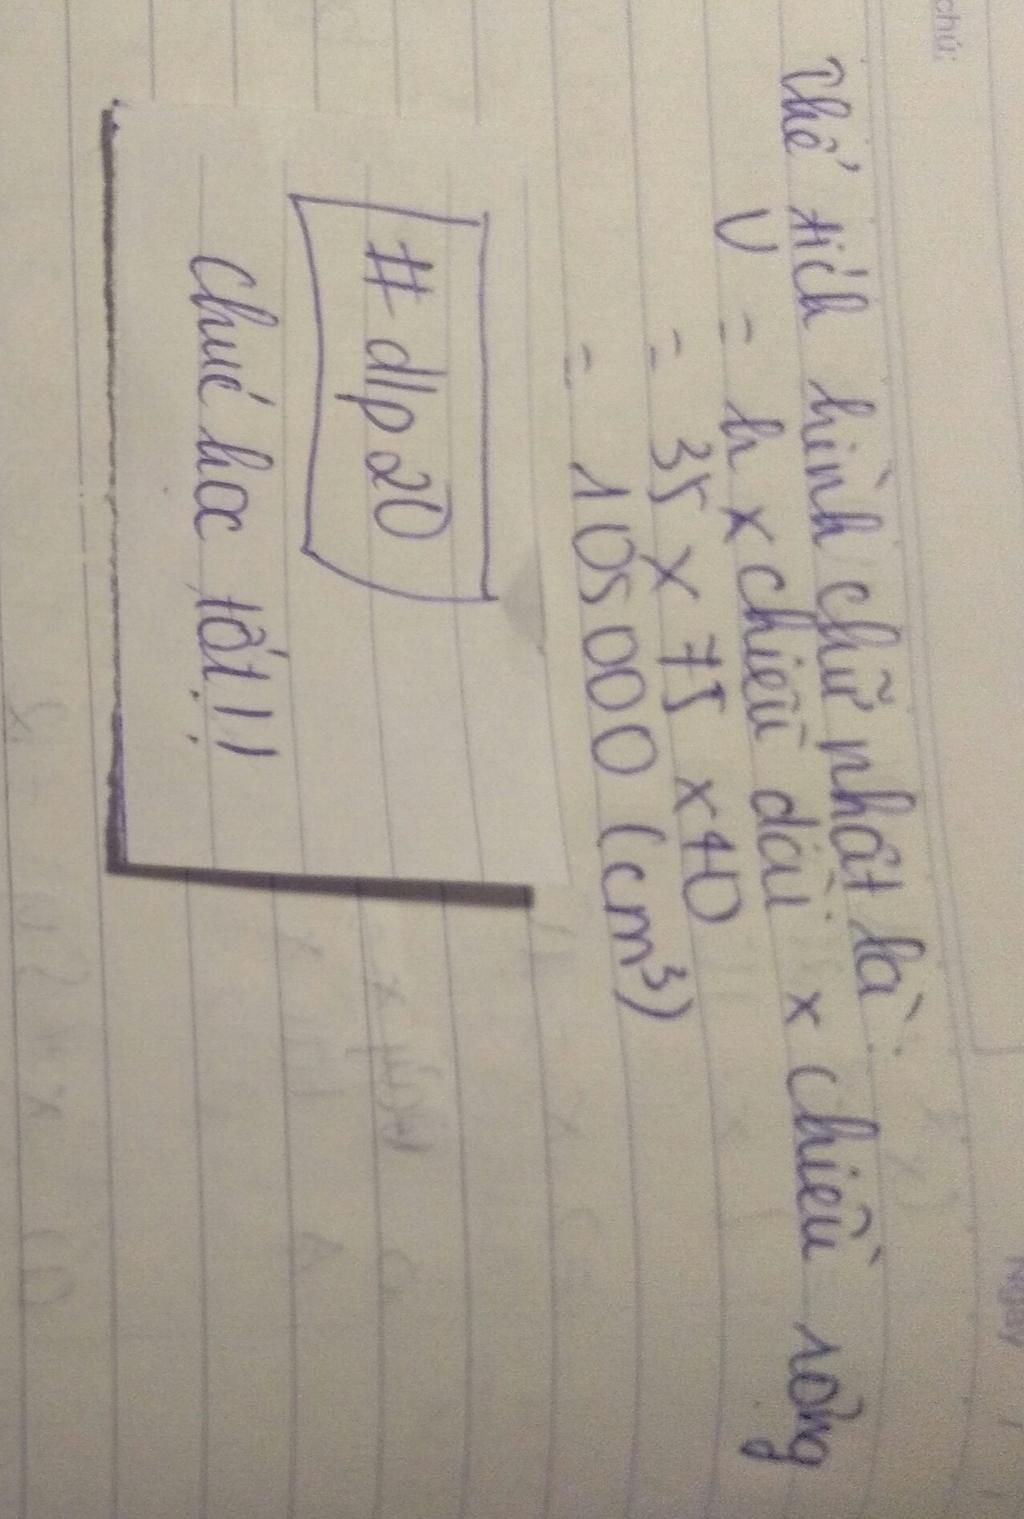 chú:
Ngày
Thể tích hình chữ nhật là:
V = h x chiều dài x chiều rộng
= 35 x 75 x 40
= 105 000 (cm³)
# dlp 20
Chúc học tốt!!!